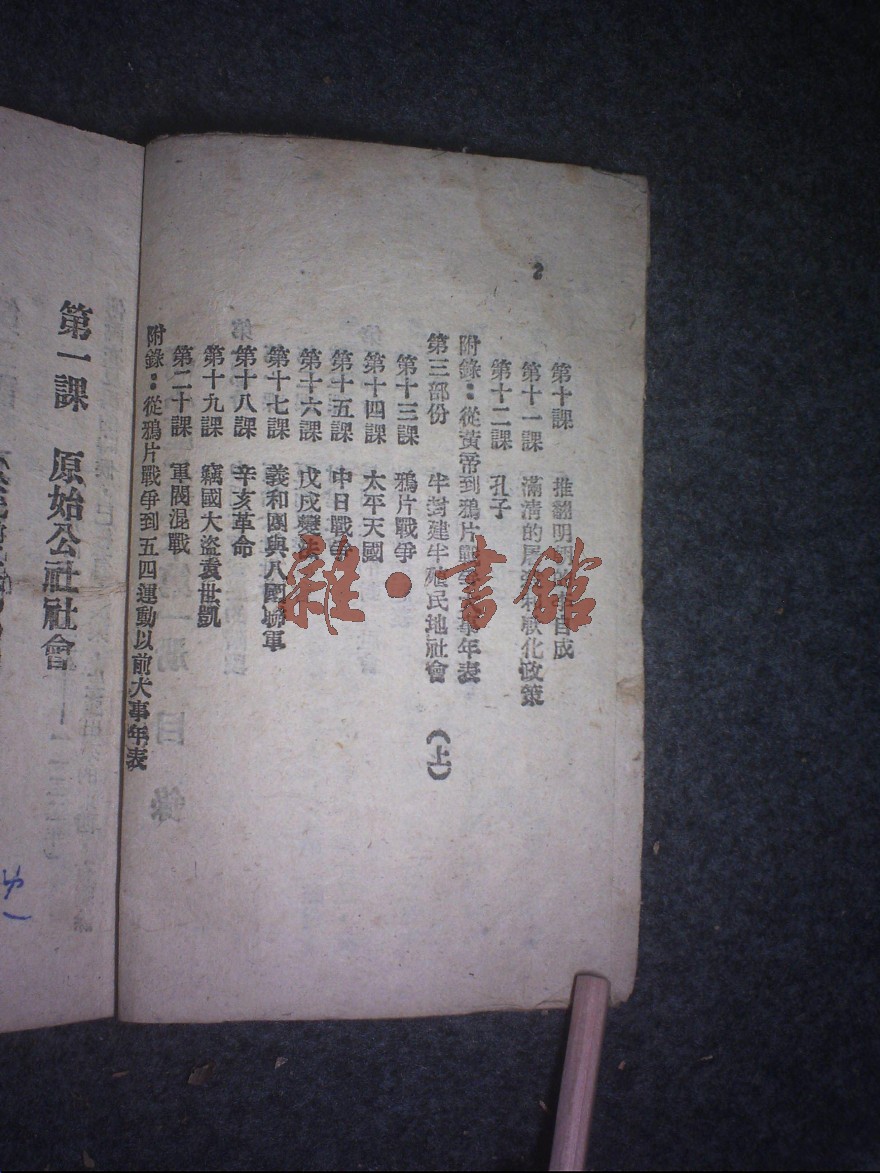 2
第十課　推翻明朝的李自成
第十一課　滿清的屠殺和軟化政策
第十二課　孔子
附錄：從黃帝到鴉片戰爭大事年表
第三部份　半封建半殖民地社會　（上）
第十三課　鴉片戰爭
第十四課　太平天國
第十五課　中日戰爭
第十六課　戊戌變法
第十七課　義和團與八國聯軍
第十八課　辛亥革命
第十九課　竊國大盜袁世凱
第二十課　軍閥混戰
附錄：從鴉片戰爭到五四運動以前大事年表
第一課　原始公社社會
雜·書館